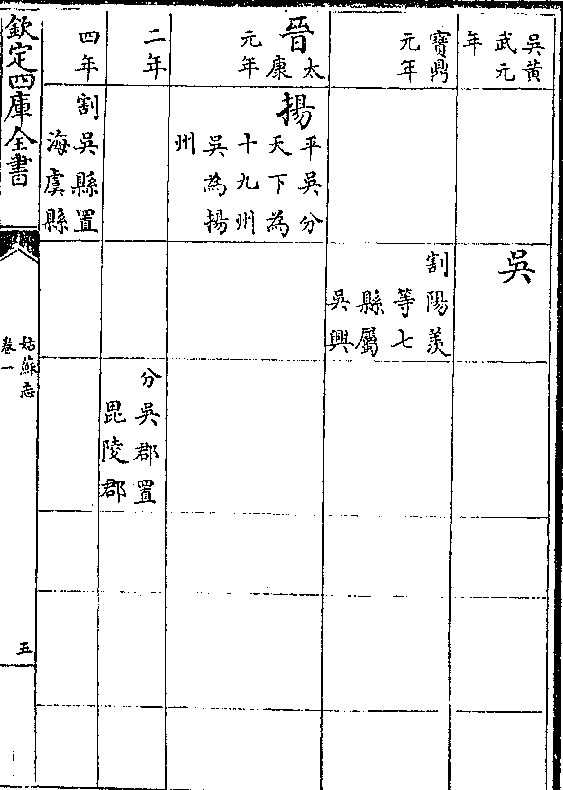 吳黃
武元
年
吳
寶鼎
元年
割陽羨
等七
縣屬
吳興
晉太
康
元年
揚平吳分
天下為
十九州
吳為揚
州
二年
分吳郡置
毘陵郡
四年
割吳縣置
海虞縣
欽定四庫全書
姑蘇志
卷一
五